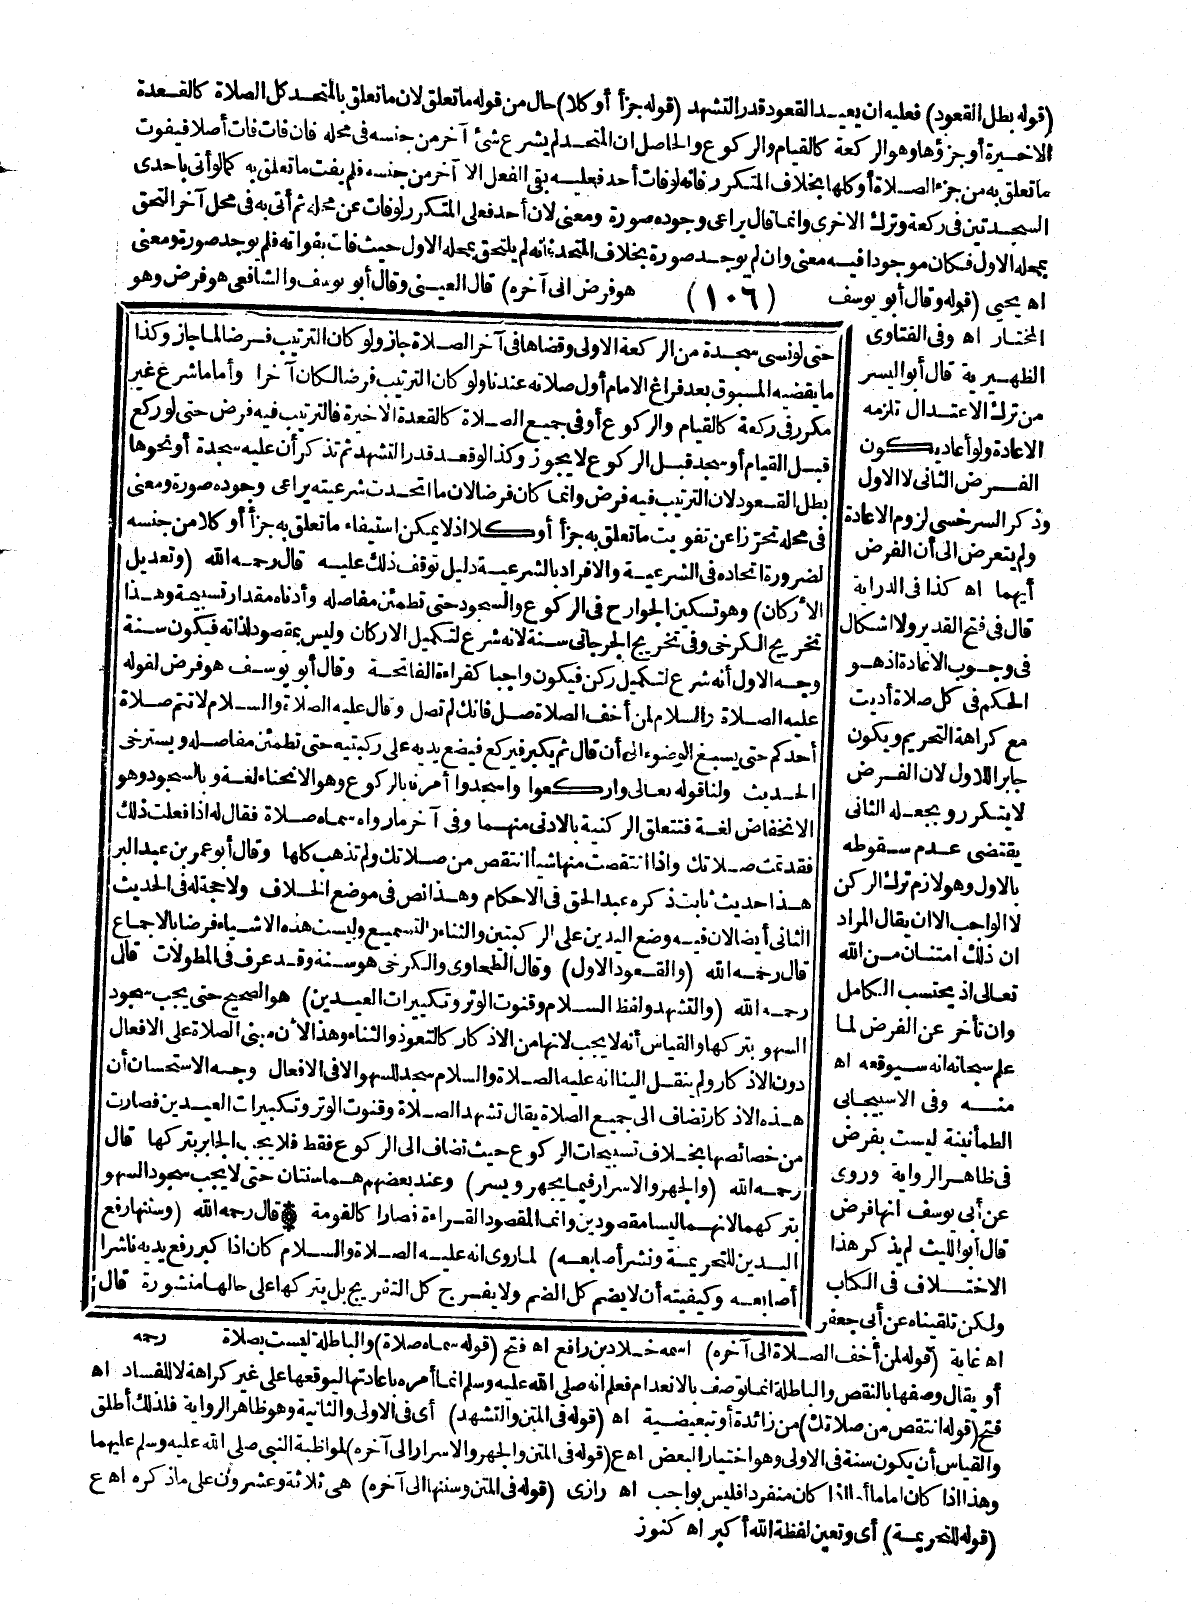 (قوله بطل القعود) فعليه ان يعيد القعود قدر التشهد (قوله جزأ أو كلا) حال من قوله ما تعلق لان ما تعلق بالمتحد كل الصلاة كالقعدة
الاخيرة أو جزؤها وهو الركعة كالقيام والركوع والحاصل ان المتحد لم يشرع شئ آخر من جنسه فى محله فان فات فات أصلا فيفوت
ما تعلق به من جزء الصلاة أو كلها بخلاف المتكرر فانه لو فات أحد فعليه بقى الفعل الا آخر من جنسه فلم يفت ما تعلق به كما لو أتى باحدى
السجدتين فى ركعة وترك الاخرى وانما قال يراعى وجوده صورة ومعنى لان أحد فعلى المتكرر لو فات عن محله ثم أتى به فى محل آخر التحق
بمحله الاول فكان موجودا فيه معنى وان لم يوجد صورة بخلاف المتحد فانه لم يلتحق بمحله الاول حيث فات بفواته فلم يوجد صورة ومعنى
اه يحيى (قوله وقال أبو يوسف (١٠٦) هو فرض الى آخره) قال العينى وقال أبو يوسف والشافعى هو فرض وهو
المختار اه وفى الفتاوى
الظهيرية قال أبو اليسر
من ترك الاعتدال تلزمه
الاعادة ولو أعاد يكون
الفرض الثانى لا الاول
وذكر السرخسى لزوم الاعادة
ولم يتعرض الى أن الفرض
أيهما اه كذا فى الدراية
قال فى فتح القدير ولا اشكال
فى وجوب الاعادة اذ هو
الحكم فى كل صلاة أديت
مع كراهة التحريم ويكون
جابرا للاول لان الفرض
لا يتكرر وجعله الثانى
يقتضى عدم سقوطه
بالاول وهو لازم ترك الركن
لا الواجب الا ان يقال المراد
ان ذلك امتنان من الله
تعالى اذ يحتسب الكامل
وان تأخر عن الفرض لما
علم سبحانه انه سيوقعه اه
منه وفى الاسبيجابى
الطمأنينة ليست بفرض
فى ظاهر الرواية وروى
عن أبى يوسف انها فرض
قال أبو الليث لم يذكر هذا
الاختلاف فى الكتاب
ولكن تلقيناه عن أبى جعفر
حتى لو نسى سجدة من الركعة الاولى وقضاها فى آخر الصلاة جاز ولو كان الترتيب فرضا لما جاز وكذا
ما يقضيه المسبوق بعد فراغ الامام أول صلاته عندنا ولو كان الترتيب فرضا لكان آخرا وأما ما شرع غير
مكرر فى ركعة كالقيام والركوع أو فى جميع الصلاة كالقعدة الاخيرة فالترتيب فيه فرض حتى لو ركع
قبل القيام أو سجد قبل الركوع لا يجوز وكذا لو قعد قدر التشهد ثم تذكر أن عليه سجدة أو نحوها
بطل القعود لان الترتيب فيه فرض وانما كان فرضا لان ما اتحدت شرعيته يراعى وجوده صورة ومعنى
فى محله تحرزا عن تفويت ما تعلق به جزأ أو كلا اذ لا يمكن استيفاء ما تعلق به جزأ أو كلا من جنسه
لضرورة اتحاده فى الشرعية والافراد بالشرعية دليل توقف ذلك عليه قال رحمه الله (وتعديل
الأركان) وهو تسكين الجوارح فى الركوع والسجود حتى تطمئن مفاصله وأدناه مقدار تسبيحة وهذا
تخريج الكرخى وفى تخريج الجرجانى سنة لانه شرع لتكميل الاركان وليس بمقصود لذاته فيكون سنة
وجه الاول أنه شرع لتكميل ركن فيكون واجبا كقراءة الفاتحة وقال أبو يوسف هو فرض لقوله
عليه الصلاة والسلام لمن أخف الصلاة صل فانك لم تصل وقال عليه الصلاة والسلام لا تتم صلاة
أحدكم حتى يسبغ الوضوء الى أن قال ثم يكبر فيركع فيضع يديه على ركبتيه حتى تطمئن مفاصله ويسترخى
الحديث ولنا قوله تعالى واركعوا واسجدوا أمرنا بالركوع وهو الانحناء لغة وبالسجود وهو
الانخفاض لغة فتتعلق الركنية بالادنى منهما وفى آخر ما رواه سماه صلاة فقال له اذا فعلت ذلك
فقد تمت صلاتك واذا انتقصت منها شيأ انتقص من صلاتك ولم تذهب كلها وقال أبو عمر بن عبد البر
هذا حديث ثابت ذكره عبد الحق فى الاحكام وهذا نص فى موضع الخلاف ولا حجة له فى الحديث
الثانى أيضا لان فيه وضع اليدين على الركبتين والثناء والتسميع وليست هذه الاشياء فرضا بالاجماع
قال رحمه الله (والقعود الاول) وقال الطحاوى والكرخى هو سنة وقد عرف فى المطولات قال
رحمه الله (والتشهد ولفظ السلام وقنوت الوتر وتكبيرات العيدين) هو الصحيح حتى يجب سجود
السهو بتركها والقياس أنه لا يجب لانها من الاذكار كالتعوذ والثناء وهذا لأن مبنى الصلاة على الافعال
دون الاذكار ولم ينقل الينا انه عليه الصلاة والسلام سجد للسهو الا فى الافعال وجه الاستحسان أن
هذه الاذكار تضاف الى جميع الصلاة يقال تشهد الصلاة وقنوت الوتر وتكبيرات العيدين فصارت
من خصائصها بخلاف تسبيحات الركوع حيث تضاف الى الركوع فقط فلا يجب الجابر بتركها قال
رحمه الله (والجهر والاسرار فيما يجهر ويسر) وعند بعضهم هما سنتان حتى لا يجب سجود السهو
بتركهما لانهما ليسا مقصودين وانما المقصود القراءة فصارا كالقومة قال رحمه الله (وسننها رفع
اليدين للتحريمة ونشر أصابعه) لما روى انه عليه الصلاة والسلام كان اذا كبر رفع يديه ناشرا
أصابعه وكيفيته أن لا يضم كل الضم ولا يفرج كل التفريج بل يتركها على حالها منشورة قال
اه غاية (قوله لمن أخف الصلاة الى آخره) اسمه خلاد بن رافع اه فتح (قوله سماه صلاة) والباطلة ليست بصلاة رحمه
أو يقال وصفها بالنقص والباطلة انما توصف بالانعدام فعلم انه صلى الله عليه وسلم انما أمره باعادتها ليوقعها على غير كراهة لا للفساد اه
فتح (قوله انتقص من صلاتك) من زائدة أو تبعيضية اه (قوله فى المتن والتشهد) أى فى الاولى والثانية وهو ظاهر الرواية فلذلك أطلق
والقياس أن يكون سنة فى الاولى وهو اختيار البعض اه ع (قوله فى المتن والجهر والاسرار الى آخره) لمواظبة النبى صلى الله عليه وسلم عليهما
وهذا اذا كان اماما أما اذا كان منفردا فليس بواجب اه رازى (قوله فى المتن وسننها الى آخره) هى ثلاثة وعشرون على ما ذكره اه ع
(قوله للتحريمة) أى وتعين لفظة الله أكبر اه كنوز